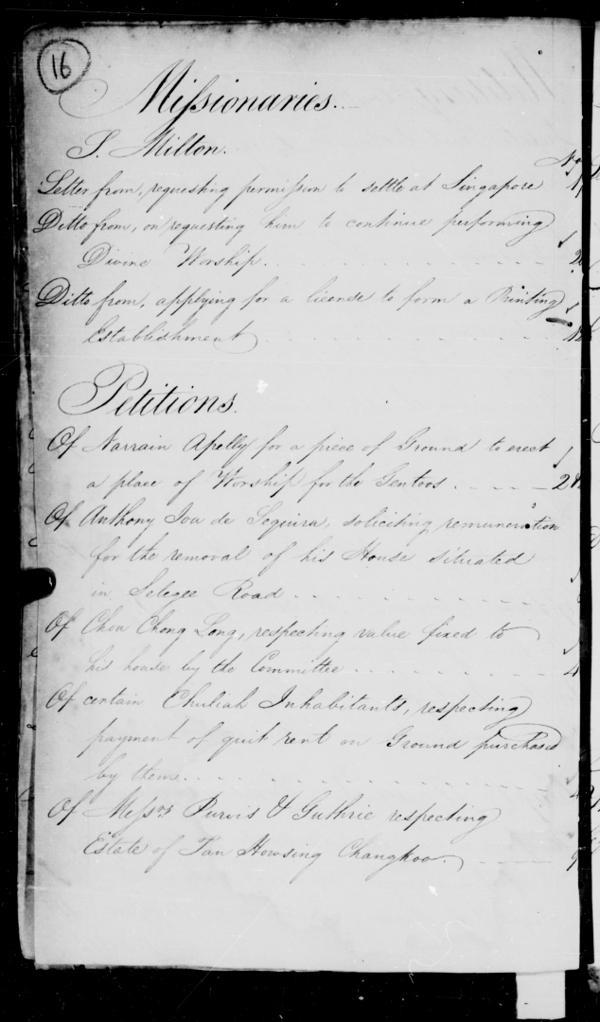 16
Missionaries.
S. Milton.
No
Letter from, requesting permission to settle at Singapore
Ditto from, on requesting him to continue performing
Divine Worship. 
Ditto from, applying for a license to form a Printing
Establishment
Petitions.
Of Narrain Apolly for a piece of Ground to erect
a place of Worship for the Gentoos
Of Anthony Joa de Sequira, soliciting remuneration
for the removal of his House situated
in Selegee Road
Of Choa Chong Long, respecting value fixed to
his house by the Committee
Of certain Chuliah Inhabitants, respecting
payment of quit rent on Ground purchased
by them
Of Messrs Purvis & Guthrie respecting
Estate of Tan Howsing Changkoo.